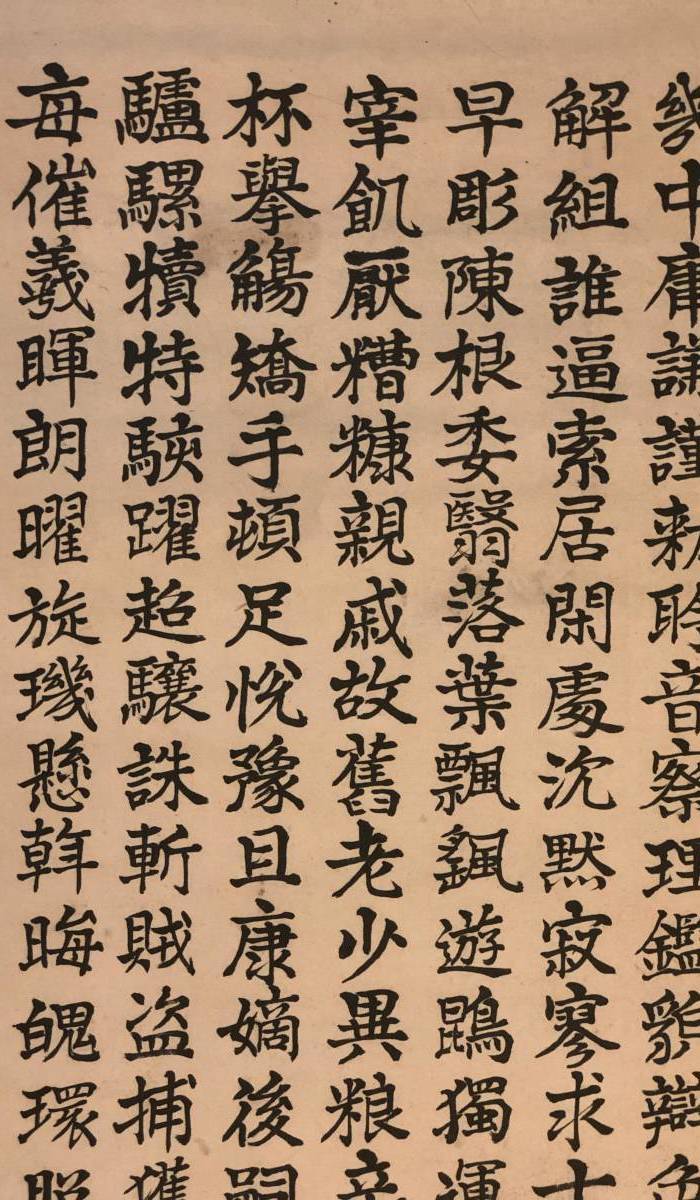 幾中庸謙謹勅聆音察理鑑貌辯色
解組誰逼索居閑處沈默寂寥求
早彫陳根委翳落葉飄颻遊鵾獨運
宰飢厭糟糠親戚故舊老少異粮
杯舉觴矯手頓足悅豫且康嫡後嗣
驢騾犢特駭躍超驤誅斬賊盗捕獲
毎催羲暉朗曜旋璣懸斡晦魄環